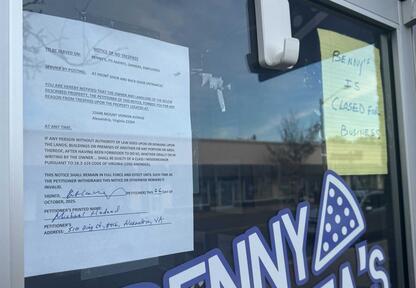 NOTICE OF NO TRESPASS
TO BE SERVED ON: BENNY'S, ITS AGENTS, OWNERS, EMPLOYEES
SERVICE BY POSTING: AT FRONT DOOR AND BACK DOOR ENTRANCES
YOU ARE HEREBY NOTIFIED THAT THE OWNER AND LANDLORD OF THE BELOW
DESCRIBED PROPERTY, THE PETITIONER OF THIS NOTICE, FORBIDS YOU FOR ANY
REASON FROM TRESPASS UPON THE PROPERTY LOCATED AT:
MOUNT VERNON AVENUE
Alexandria, Virginia
AT ANY TIME.
IF ANY PERSON WITHOUT AUTHORITY OF LAW GOES UPON OR REMAINS UPON
THE LANDS, BUILDINGS OR PREMISES OF ANOTHER OR ANY PORTION OR AREA
THEREOF, AFTER HAVING BEEN FORBIDDEN TO DO SO, WHETHER ORALLY OR IN
WRITING BY THE OWNER ... SHALL BE GUILTY OF A CLASS 1 MISDEMEANOR
PURSUANT TO CODE OF VIRGINIA
THIS NOTICE SHALL REMAIN IN FULL FORCE AND EFFECT UNTIL SUCH TIME AS THE
PETITIONER WITHDRAWS THIS NOTICE OR OTHERWISE RENDERS IT
INVALID.
SIGNED PETITIONER THIS DAY OF
OCTOBER, 2025.
PETITIONER'S PRINTED NAME:
Michael
PETITIONER'S
ADDRESS: King St, Alexandria, VA
BENNY'S
IS
CLOSED FOR
BUSINESS
BENNY
'S